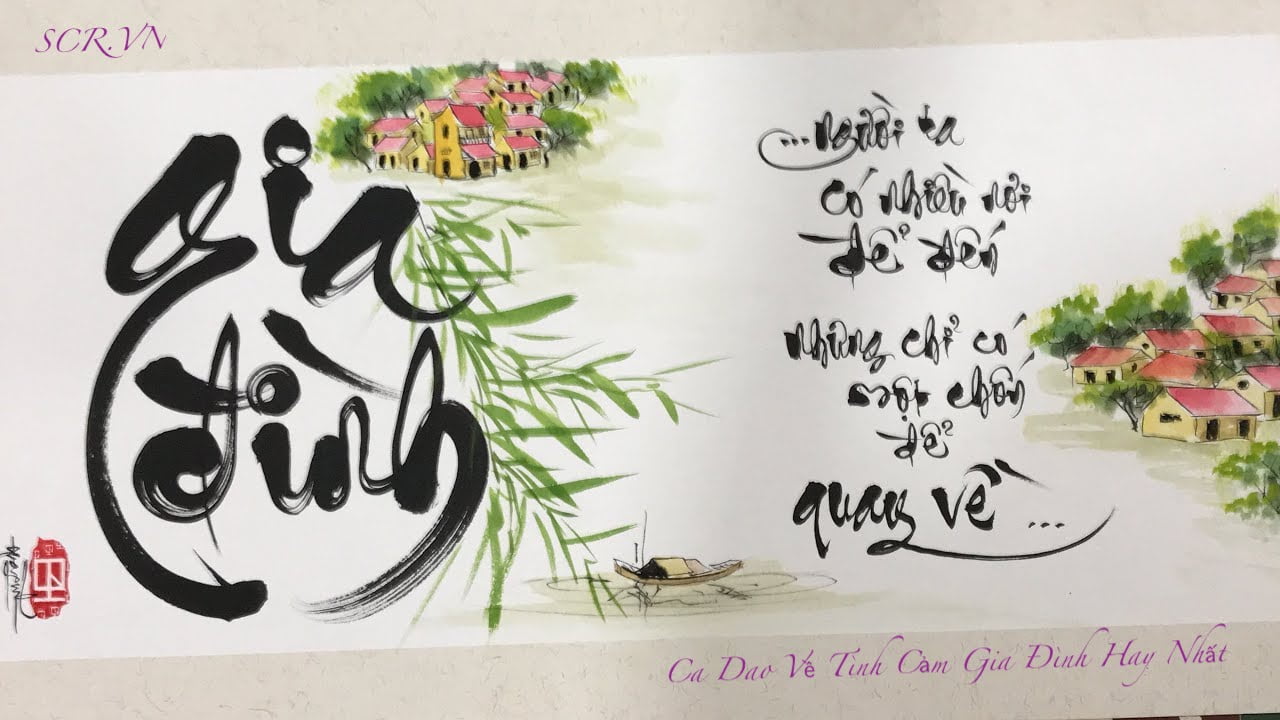 SCR.VN
Gia
đình
...người ta
có nhiều nơi
để đến
nhưng chỉ có
một chốn
để
quay về...
Ca Dao Về Tình Cảm Gia Đình Hay Nhất